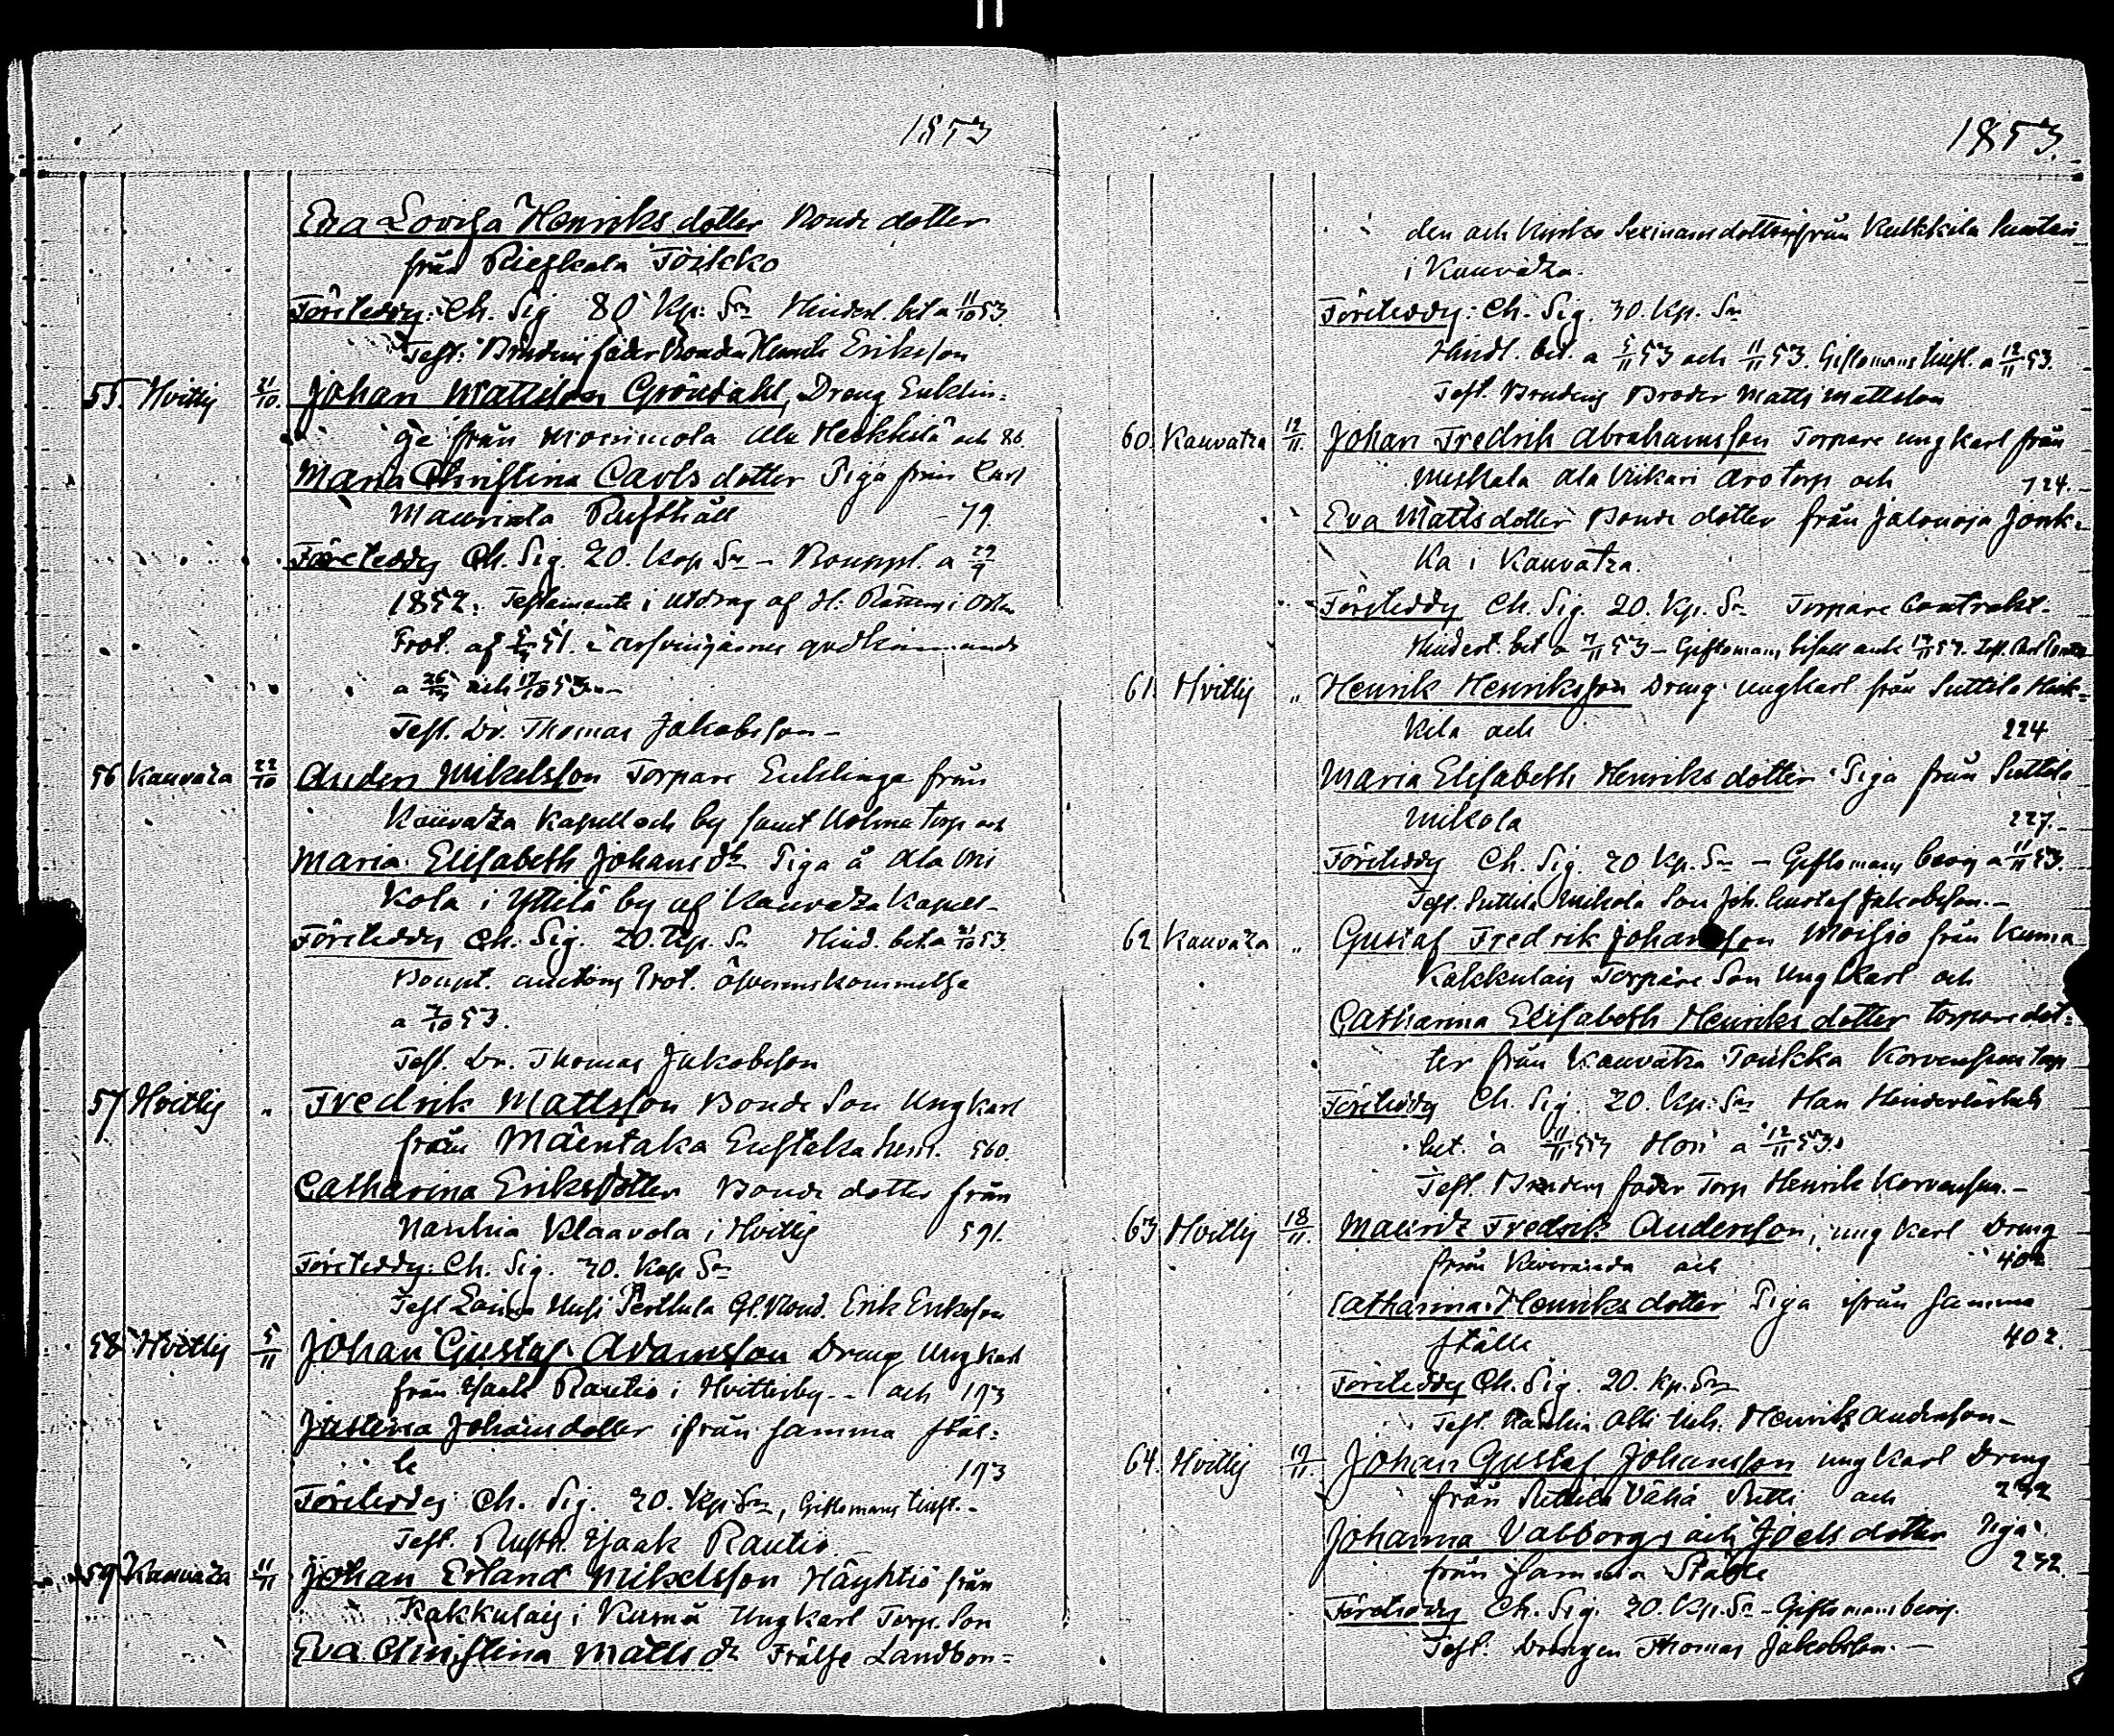 1853
Eva Lovisa Henriks dotter Bonde dotter
från Rieskala Töikko
Företedde: Ch. Sig 80 Kp: Sr Hinderl. bet a 11/10 53.
Test: Brudens fader Bonden Henrik Eriksson
55. Hvittis 21/10. Johan Mattsson Gröndahl, Dreng Enklin-
ge från Mommola Ala Heikkilä och 86.
Maria Christina Carls dotter Piga från Carl
Mauriala Rusthåll 79
Företedde Ch. Sig. 20. Kop Sr - Bouppt. a 29/9
1852. Testamente i utdrag af H: Rättens i
Prot. af 51. arfvingarnes godkännande
a 26 och 17/10 53.-
Test. Dr. Thomas Jakobsson -
56 Kauvatza 22/10 Anders Mikelsson Torpare Enklinge från
Kauvatza Kapell och by samt Holma torp och
Maria Elisabeth Johans dr Piga å Ala Mi
kola i Yttilä by af Kauvatza Kapell-
Företedde Ch. Sig. 20. Kp. Sr Hind. bet a 21/10 53.
Boupt. auctions Prot. öfverenskommelse
a 7/10 53.
Test. Dr. Thomas Jakobsson
57 Hvittis " Fredrik Mattsson Bonde Son Ungkarl
från Mäentaka Eustaka hem. 560.
Catharina Eriksdotter Bonde dotter från
Nanhia Klaavola i Hvittis 591.
Företedde: Ch. Sig. 30. Kop Sr
Test Perttula Gl. Bond. Erik Eriksson
58 Hvittis 5/11 Johan Gustaf Adamsson Dreng Ungkarl
från Isaak Rautio i Hvittisby -- och 193
Justina Johansdotter ifrån samma stäl-
le 193
Företedde Ch. Sig. 20. Kp Sr, Giftomans tillst.-
Test. Rusth. Isaak Rautio
59 Kauvatza 11/11 Johan Erland Mikelsson Häyhtiö från
Kakkulais i Kumå Ungkarl Torp. Son
Eva Christina Matts dr Frälse Landbon-
1853.
den och från Kulkkila
i Kauvatza.
Företedde: Ch. Sig. 30. Kp. Sr
Hindl. bet. a 5/11 53 och 11/11 53. Giftomans tillst. a 12/11 53.
Test. Brudens Broder Matts Mattsson
60. Kauvatza 12/11. Johan Fredrik Abrahamsson Torpare ungkarl från
Meskala Ala Viikari Aro torp och 724.-
Eva Matts dotter Bonde dotter från Jalonoja Jonk-
ka i Kauvatza.
Företedde Ch. Sig. 20. Kp. Sr Torpare Contrakt-
Hinderl. bet a 7/11 53 - Giftomans bifall
61. Hvittis " Henrik Henriksson Dreng ungkarl från Suttila Heik-
kila och 224
Maria Elisabeth Henriks dotter Piga från Suttila
Mikola 227.-
Företedde Ch. Sig. 20 Kp. Sr - Giftomans bevis a 11/11 53.
Test. Suttila Mikola Son Joh. Gustaf Jakobsson.-
62 Kauvatza " Gustaf Fredrik Johansson Moisio från Kumå
Kakkulais Torpare Son Ungkarl och
Catharina Elisabeth Henriks dotter torpare dot-
ter från Kauvatza Toukka Korvenpään torp
Företedde Ch. Sig. 20. Kp. Sr Han Hinderlöshets
bet. a 11/11 53 Hon a 12/11 53.
Test. Brudens fader Torp Henrik Korvenpää.-
63 Hvittis 18/11. Mauritz Fredrik Andersson, ungkarl Dreng
från Kiviranda och 402
Catharina Henriks dotter Piga ifrån samma
ställe 402.
Företedde Ch. Sig. 20. Kp. Sr
Test. Nanhia Henrik Andersson-
64. Hvittis 19/11. Johan Gustaf Johansson ungkarl Dreng
från Suttila Vähä och 232
Johanna Valborg Joels dotter Piga
från samma Ställe 232.
Företedde Ch. Sig. 20. Kp. Sr - Giftomans bevis.
Test. Drengen Thomas Jakobsson.-